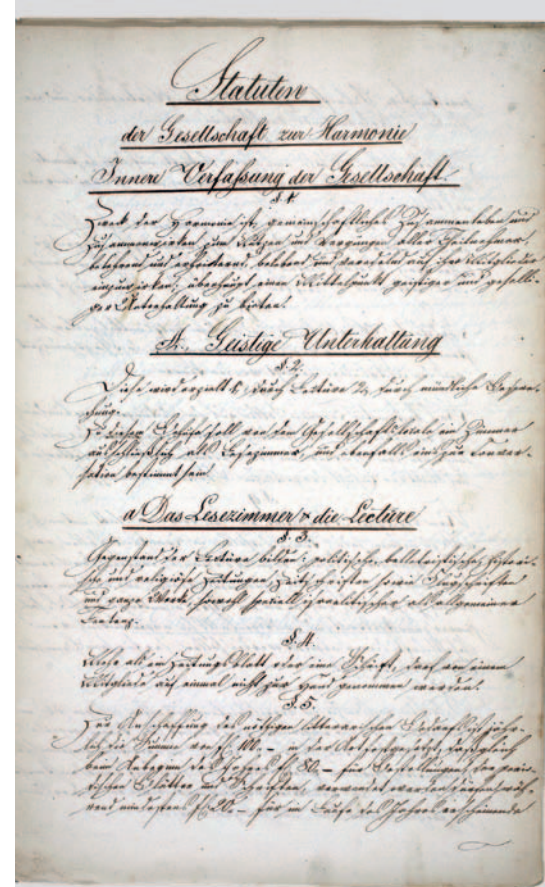 Statuten
der Gesellschaft zur Harmonie
Innere Verfaßung der Gesellschaft.
§. 1.
Zweck der Harmonie ist, gemeinschaftliches Zusammenleben und
Zusammenwirken zum Nutzen und Vergnügen aller Theilnehmer,
belehrend und erheiternd, belebend und veredelnd auf ihre Mitglieder
einzuwirken; überhaupt einen Mittelpunkt geistiger und geselli-
ger Unterhaltung zu bieten.
A. Geistige Unterhaltung
§. 2.
Diese wird erzielt 1, durch Lectüre 2, durch mündliche Bespre-
chung.
Zu diesem Behufe soll von dem Gesellschaftslocale ein Zimmer
ausschließlich als Lesezimmer, und ebenfalls eins zur Conver-
sation bestimmt sein.
a Das Lesezimmer & die Lectüre
§. 3.
Gegenstand der Lectüre bilden: politische, belletristische, histori-
sche und religiöse Zeitungen, Zeitschriften sowie Flugschriften
und ganze Werke, sowohl speciell israelitischer als allgemeiner
Tendenz.
§. 4.
Mehr als ein Zeitungsblatt oder eine Schrift, darf von einem
Mitgliede auf einmal nicht zur Hand genommen werden.
§. 5.
Zur Anschaffung des nöthigen litterarischen Bedarfs ist jähr-
lich die Summe von fl. 100.– in der Art festgesetzt, daß gleich
beim Anfange des Jahres fl 80.– für Bestellungen der perio-
dischen Blätter und Schriften, verwendet werden wäh-
rend mindestens fl. 20.– für im Laufe des Jahres erscheinende